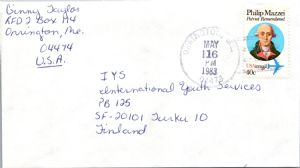 Benny Taylor
RFD 2 Box 44
Orrington, Me.
04474
U.S.A.
MAY
16
PM
1983
04474
Philip Mazzei
Patriot Remembered
USAirmail
40c
IYS
International Youth Services
PB 125
SF-20101 Turku 10
Finland